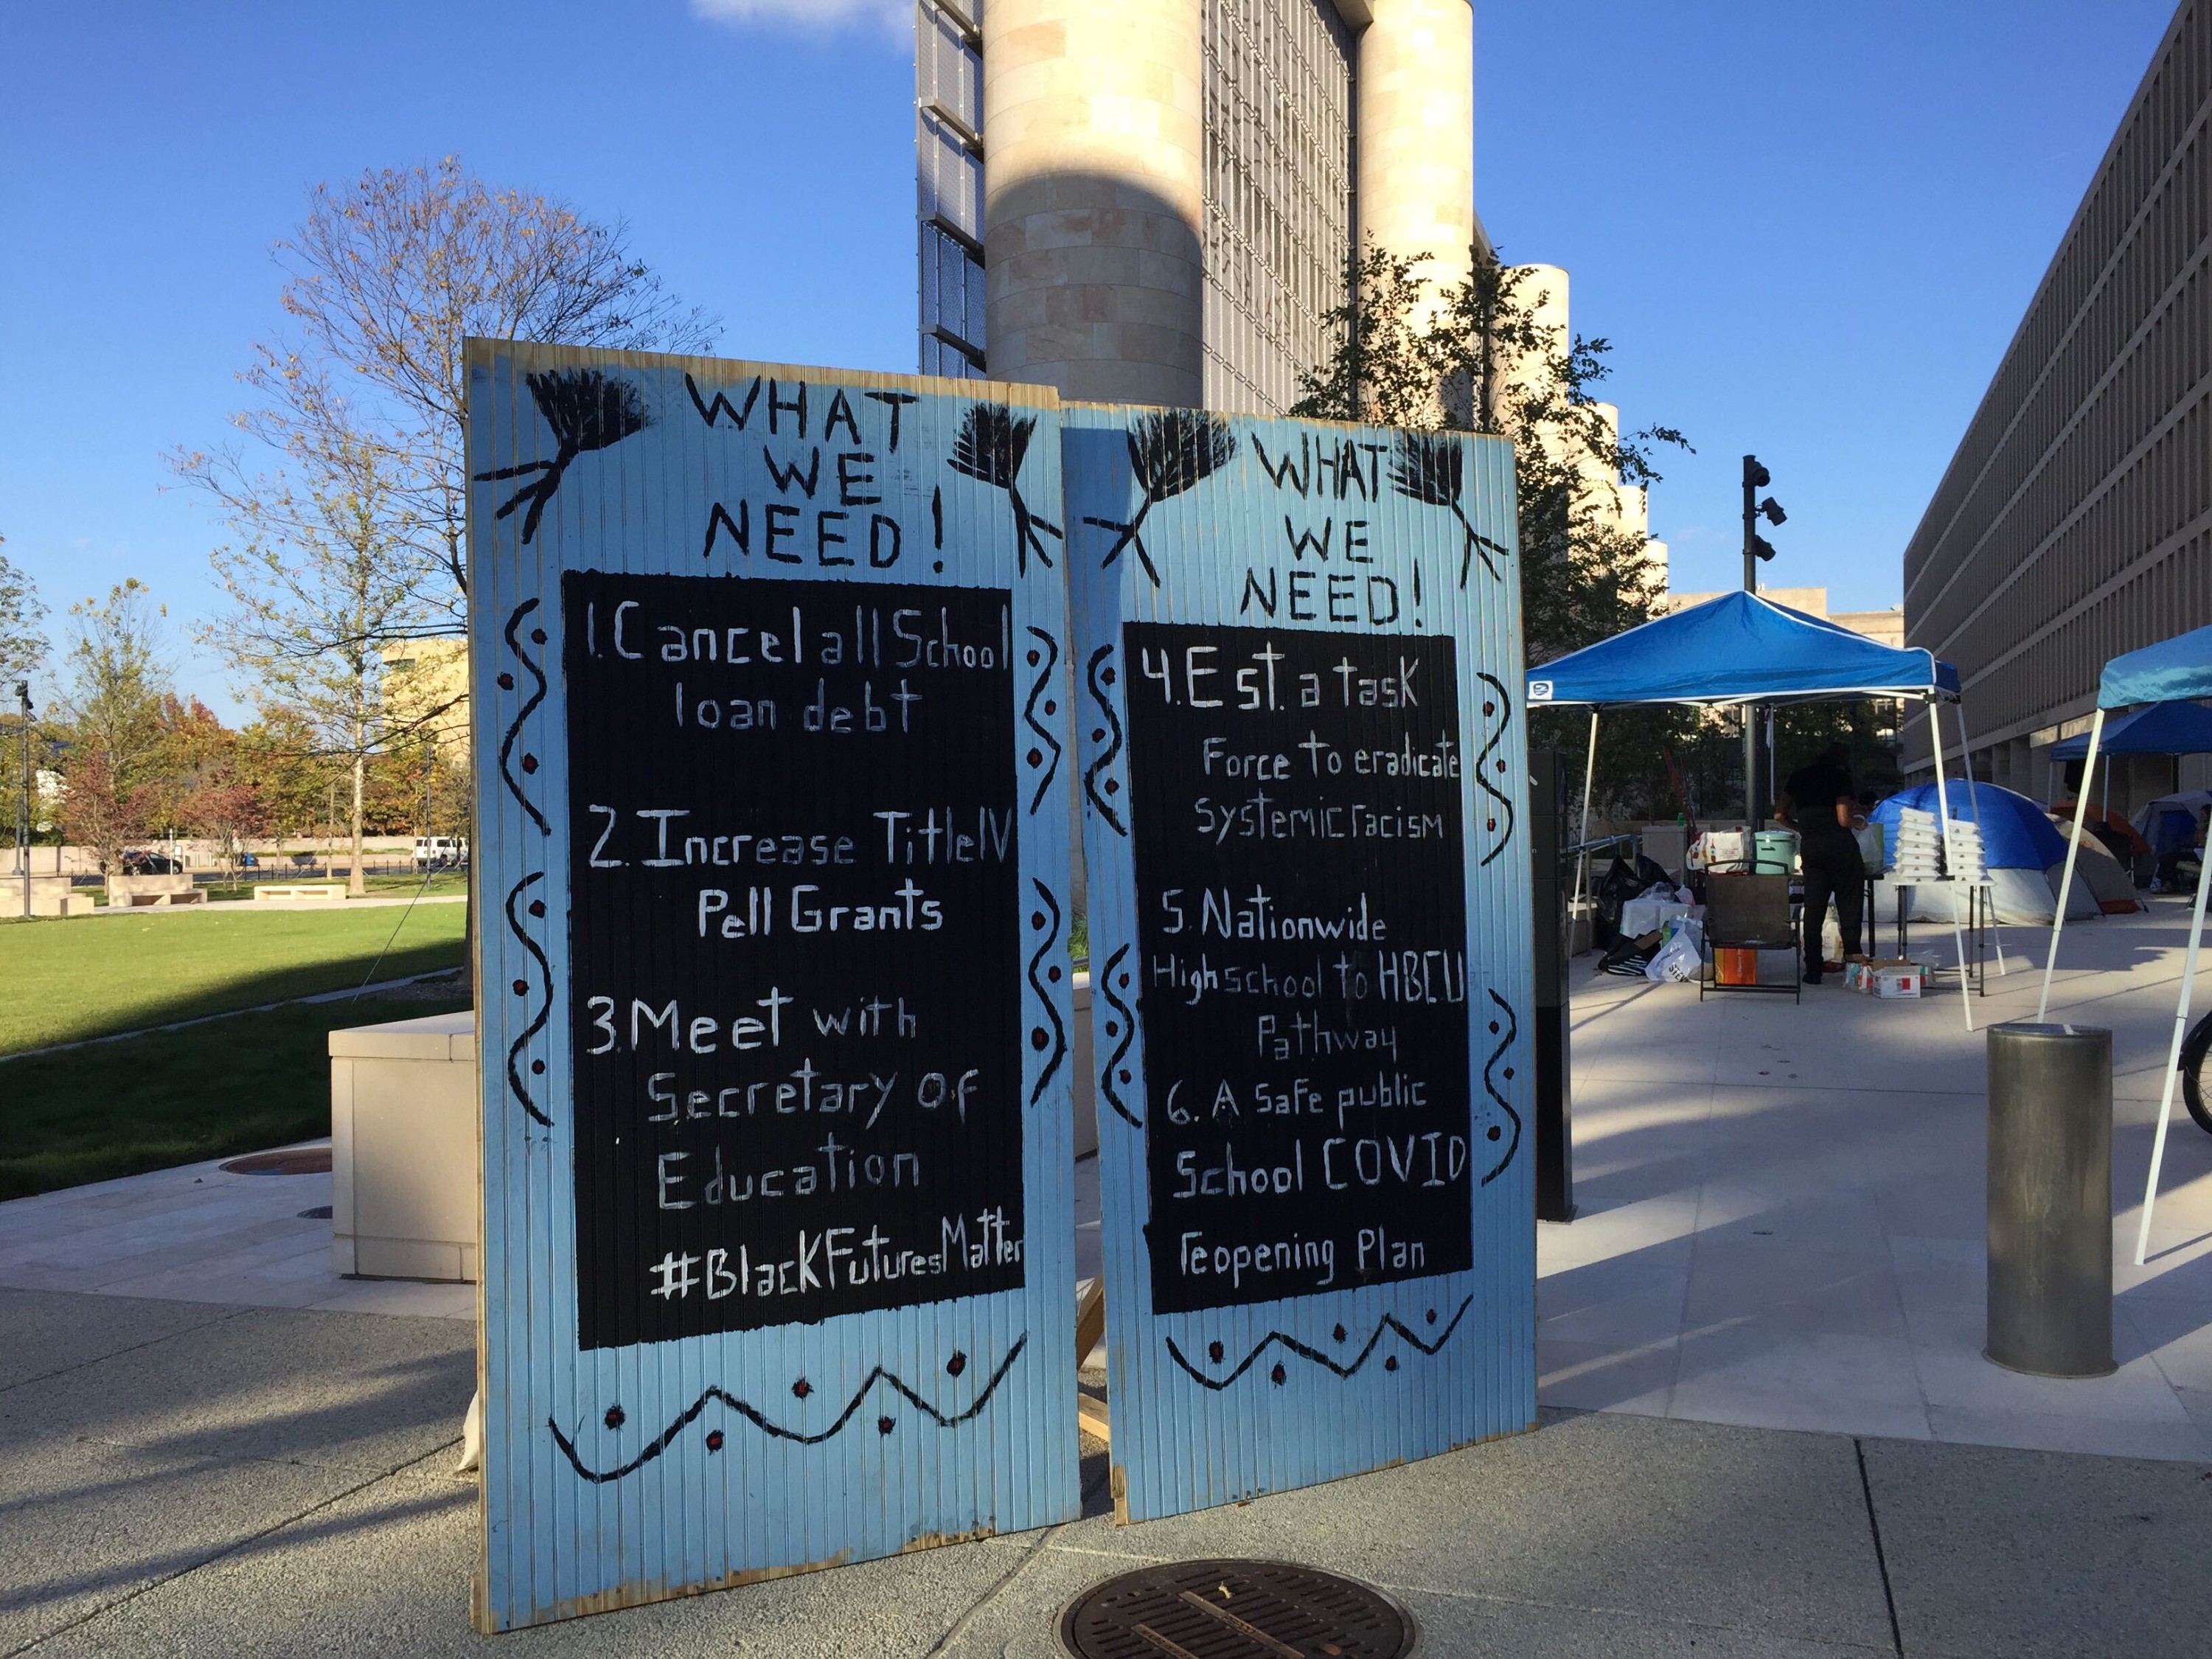 WHAT
WE
NEED!
1. Cancel all School
loan debt
2. Increase Title IV
Pell Grants
3. Meet with
Secretary of
Education
#BlackFuturesMatter
WHAT
WE
NEED!
4. Est. a task
Force to eradicate
systemic racism
5. Nationwide
High school to HBCU
Pathway
6. A safe public
School COVID
reopening Plan